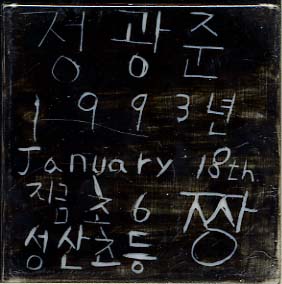 정광준
1993년
January 18th
지금 초6 짱
성산초등